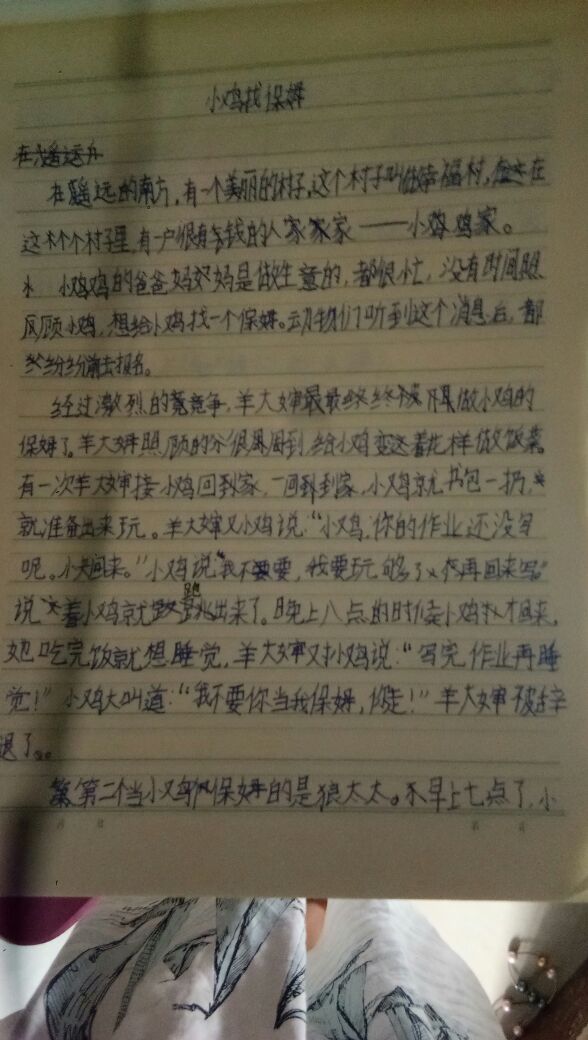 小鸡找保姆
在遥远
在遥远的南方，有一个美丽的村子，这个村子叫做幸福村，在
这个村子里，有一户很有钱的人家——小鸡家。
小鸡的爸爸妈妈是做生意的，都很忙，没有时间照
顾小鸡，想给小鸡找一个保姆。动物们听到这个消息后，都
纷纷前去报名。
经过激烈的竞争，羊大婶最终做小鸡的
保姆了。羊大婶照顾的很周到，给小鸡变这着花样做饭菜。
有一次羊大婶接小鸡回到家，一回到家，小鸡就书包一扔，
就准备出来玩。羊大婶又小鸡说：“小鸡，你的作业还没写
呢。回来。”小鸡说“我不要，我要玩够了再回来写”
说着小鸡就跑出来了。晚上八点的时候小鸡才回来，
她吃完饭就想睡觉，羊大婶又小鸡说：“写完作业再睡
觉！”小鸡大叫道：“我不要你当我保姆，你走！”羊大婶被辞
退了。
第二个当小鸡保姆的是狼太太。早上七点了，小